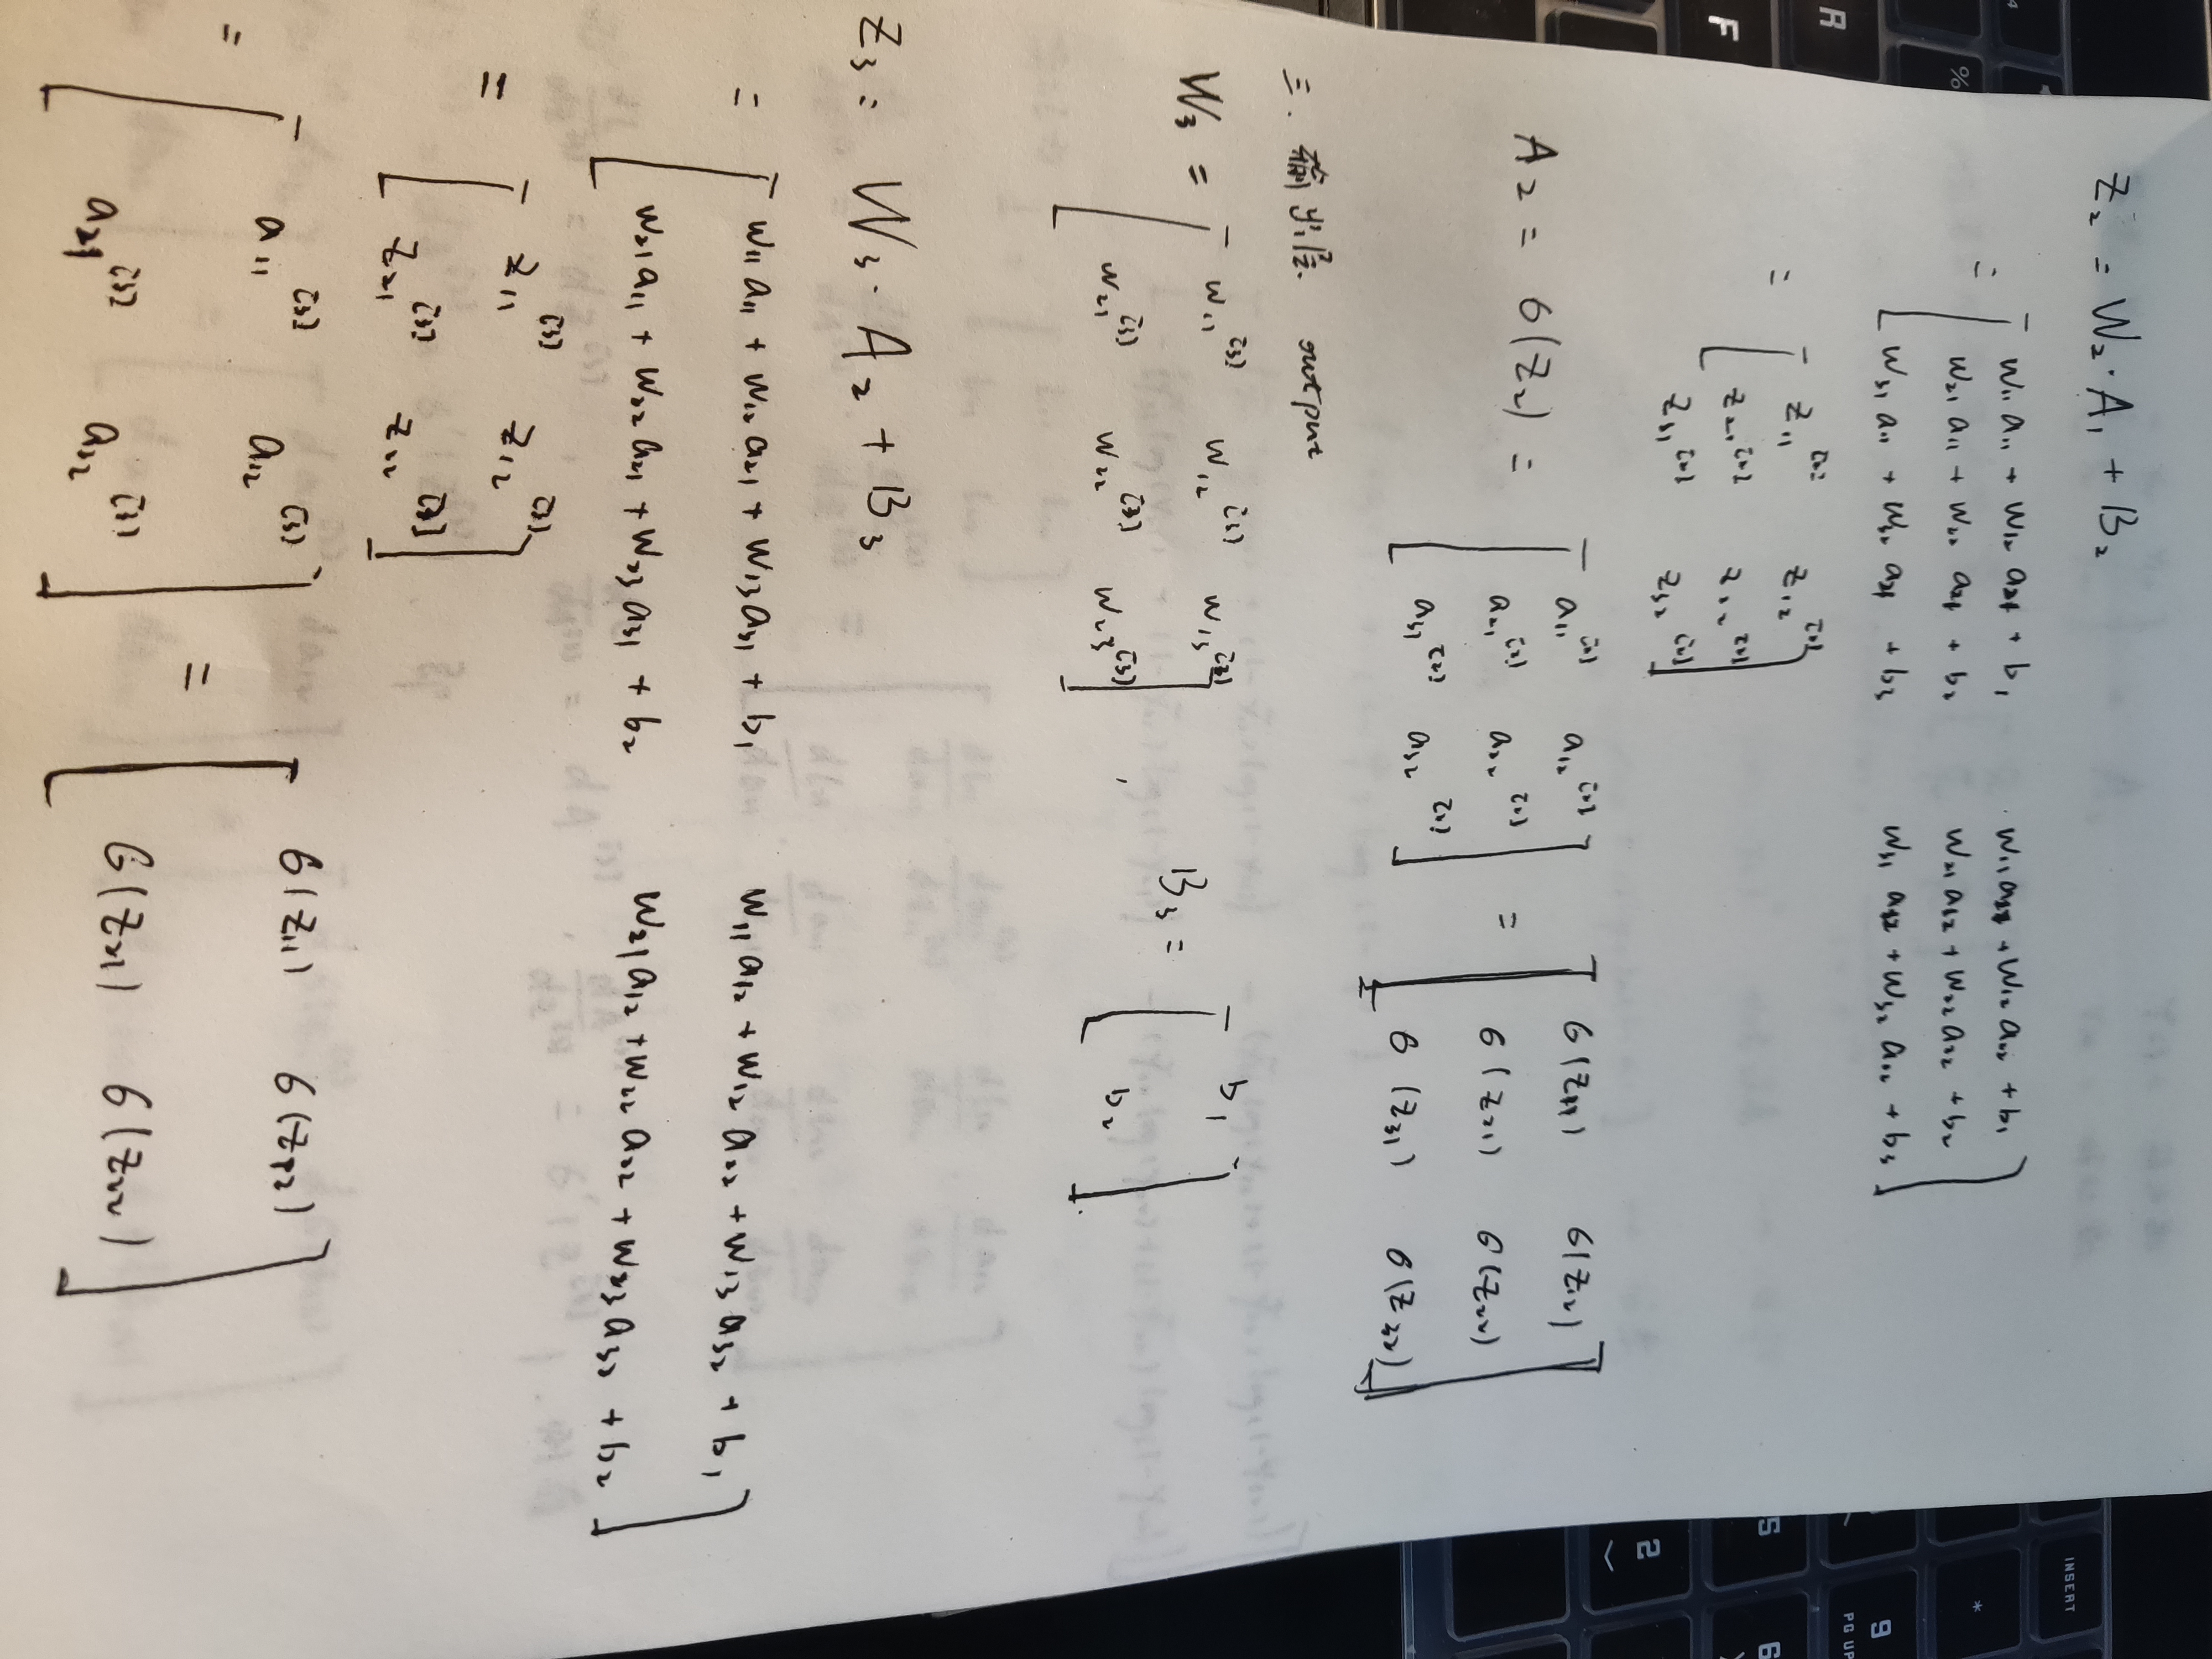 Z₂ = W₂ · A₁ + B₂
= [ w₁₁a₁₁ + w₁₂a₂₁ + b₁   w₁₁a₁₂ + w₁₂a₂₂ + b₁
w₂₁a₁₁ + w₂₂a₂₁ + b₂   w₂₁a₁₂ + w₂₂a₂₂ + b₂
w₃₁a₁₁ + w₃₂a₂₁ + b₃   w₃₁a₁₂ + w₃₂a₂₂ + b₃ ]
= [ z₁₁^[2]   z₁₂^[2]
z₂₁^[2]   z₂₂^[2]
z₃₁^[2]   z₃₂^[2] ]
A₂ = σ(Z₂) = [ a₁₁^[2]   a₁₂^[2] ] = [ σ(z₁₁)   σ(z₁₂) ]
a₂₁^[2]   a₂₂^[2]   σ(z₂₁)   σ(z₂₂)
a₃₁^[2]   a₃₂^[2]   σ(z₃₁)   σ(z₃₂)
三. 输出层. output
W₃ = [ w₁₁^[3]   w₁₂^[3]   w₁₃^[3] ] , B₃ = [ b₁ ]
w₂₁^[3]   w₂₂^[3]   w₂₃^[3]   b₂
Z₃ : W₃ · A₂ + B₃
= [ w₁₁a₁₁ + w₁₂a₂₁ + w₁₃a₃₁ + b₁   w₁₁a₁₂ + w₁₂a₂₂ + w₁₃a₃₂ + b₁
w₂₁a₁₁ + w₂₂a₂₁ + w₂₃a₃₁ + b₂   w₂₁a₁₂ + w₂₂a₂₂ + w₂₃a₃₂ + b₂ ]
= [ z₁₁^[3]   z₁₂^[3]
z₂₁^[3]   z₂₂^[3] ]
= [ a₁₁^[3]   a₁₂^[3] ] = [ σ(z₁₁)   σ(z₁₂) ]
a₂₁^[3]   a₂₂^[3]   σ(z₂₁)   σ(z₂₂)
R
F
%
INSERT
*
9
PG UP
5
6
2